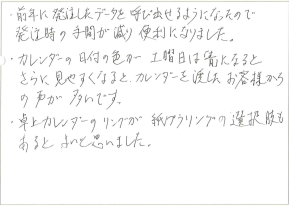 ・前年に発注したデータを呼び出せるようになったので
発注時の手間が減り便利になりました。
・カレンダーの日付の色が土曜日は青になると
さらに見やすくなると、カレンダーを渡したお客様から
の声が多いです。
・卓上カレンダーのリングが紙のリングの選択肢も
あると よいと思いました。